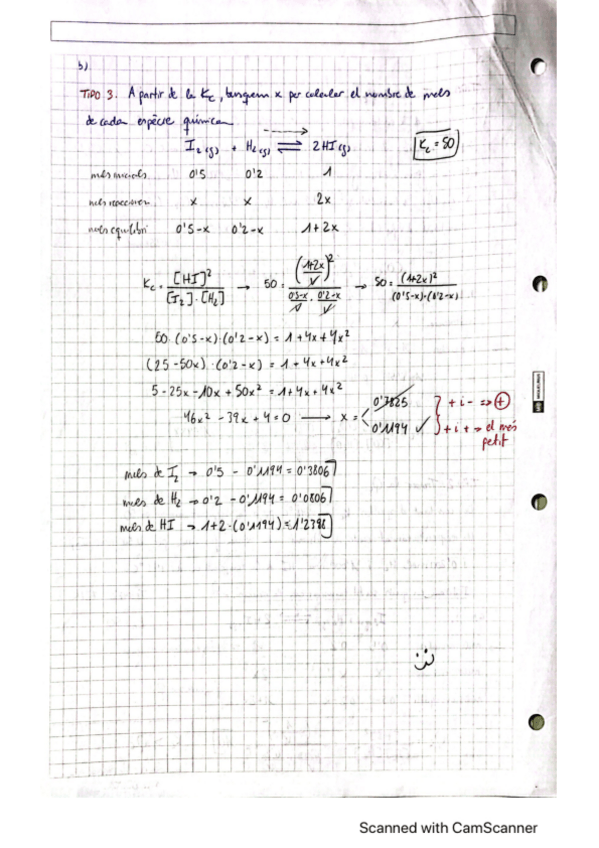 b)
TIPO 3. A partir de la Kc, tenguem x per calcular el nombre de mols
de cada espècie química
I₂(g) + H₂(g) ⇌ 2HI(g) Kc = 50
mols inicials 0'5 0'2 1
mols reaccionen x x 2x
mols equilibri 0'5-x 0'2-x 1+2x
Kc = [HI]² / [I₂]·[H₂] → 50 = ((1+2x)/V)² / (0'5-x)/V · (0'2-x)/V → 50 = (1+2x)² / (0'5-x)·(0'2-x)
50·(0'5-x)·(0'2-x) = 1+4x+4x²
(25-50x)·(0'2-x) = 1+4x+4x²
5-25x-10x+50x² = 1+4x+4x²
46x² - 39x + 4 = 0 → x = 0'7825 + i - => +
0'1194 ✓ + i + → el més
petit
mols de I₂ → 0'5 - 0'1194 = 0'3806
mols de H₂ → 0'2 - 0'1194 = 0'0806
mols de HI → 1+2·(0'1194) = 1'2388
Scanned with CamScanner